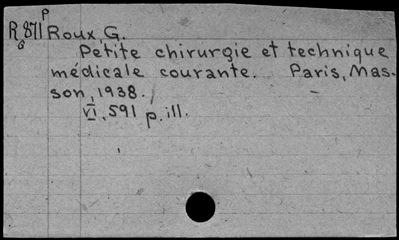 R 871 p Roux G.
6
Petite chirurgie et technique
médicale courante. Paris, Mas-
son, 1938.
VI, 591 p. ill.